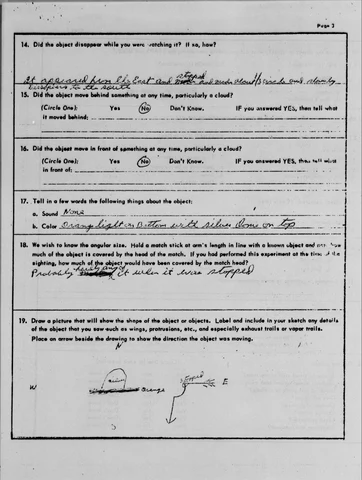 Page 3
14. Did the object disappear while you were watching it? If so, how?
It appeared from the East and stopped and made about 1/2 circle and slowly
disappears to the south
15. Did the object move behind something at any time, particularly a cloud?
(Circle One): Yes No Don't Know. IF you answered YES, then tell what
it moved behind:
16. Did the object move in front of something at any time, particularly a cloud?
(Circle One): Yes No Don't Know. IF you answered YES, then tell what
in front of:
17. Tell in a few words the following things about the object:
a. Sound None
b. Color Orange light on Bottom with silver Dome on top
18. We wish to know the angular size. Hold a match stick at arm's length in line with a known object and note how
much of the object is covered by the head of the match. If you had performed this experiment at the time of the
sighting, how much of the object would have been covered by the match head?
Probably it when it was stopped
19. Draw a picture that will show the shape of the object or objects. Label and include in your sketch any details
of the object that you saw such as wings, protrusions, etc., and especially exhaust trails or vapor trails.
Place an arrow beside the drawing to show the direction the object was moving.
N
stopped
W Orange E
S